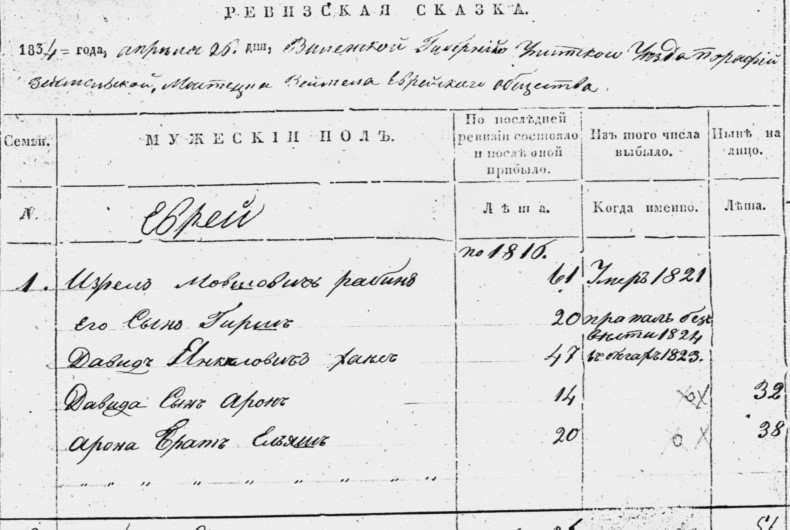 РЕВИЗСКАЯ СКАЗКА.
1834 года, апреля 26 дня, Виленской Губернiи Уезда
Еврейского общества.
Семьи.
МУЖЕСКIЙ ПОЛЪ.
По последней
ревизiи состояло
и после оной
прибыло.
Изъ того числа
выбыло.
Ныне на
лицо.
N.
Еврей
Лета.
Когда именно.
Лета.
по 1816.
1. Израель Мовшовичъ рабинъ 61 Умеръ 1821
его Сынъ Гиршъ 20 пропалъ безъ
вести 1824
Давидъ Янкеловичъ 47 1823.
Давида Сынъ Аронъ 14 32
Арона Братъ Ельяшъ 20 38
" " " " " " " " "
51